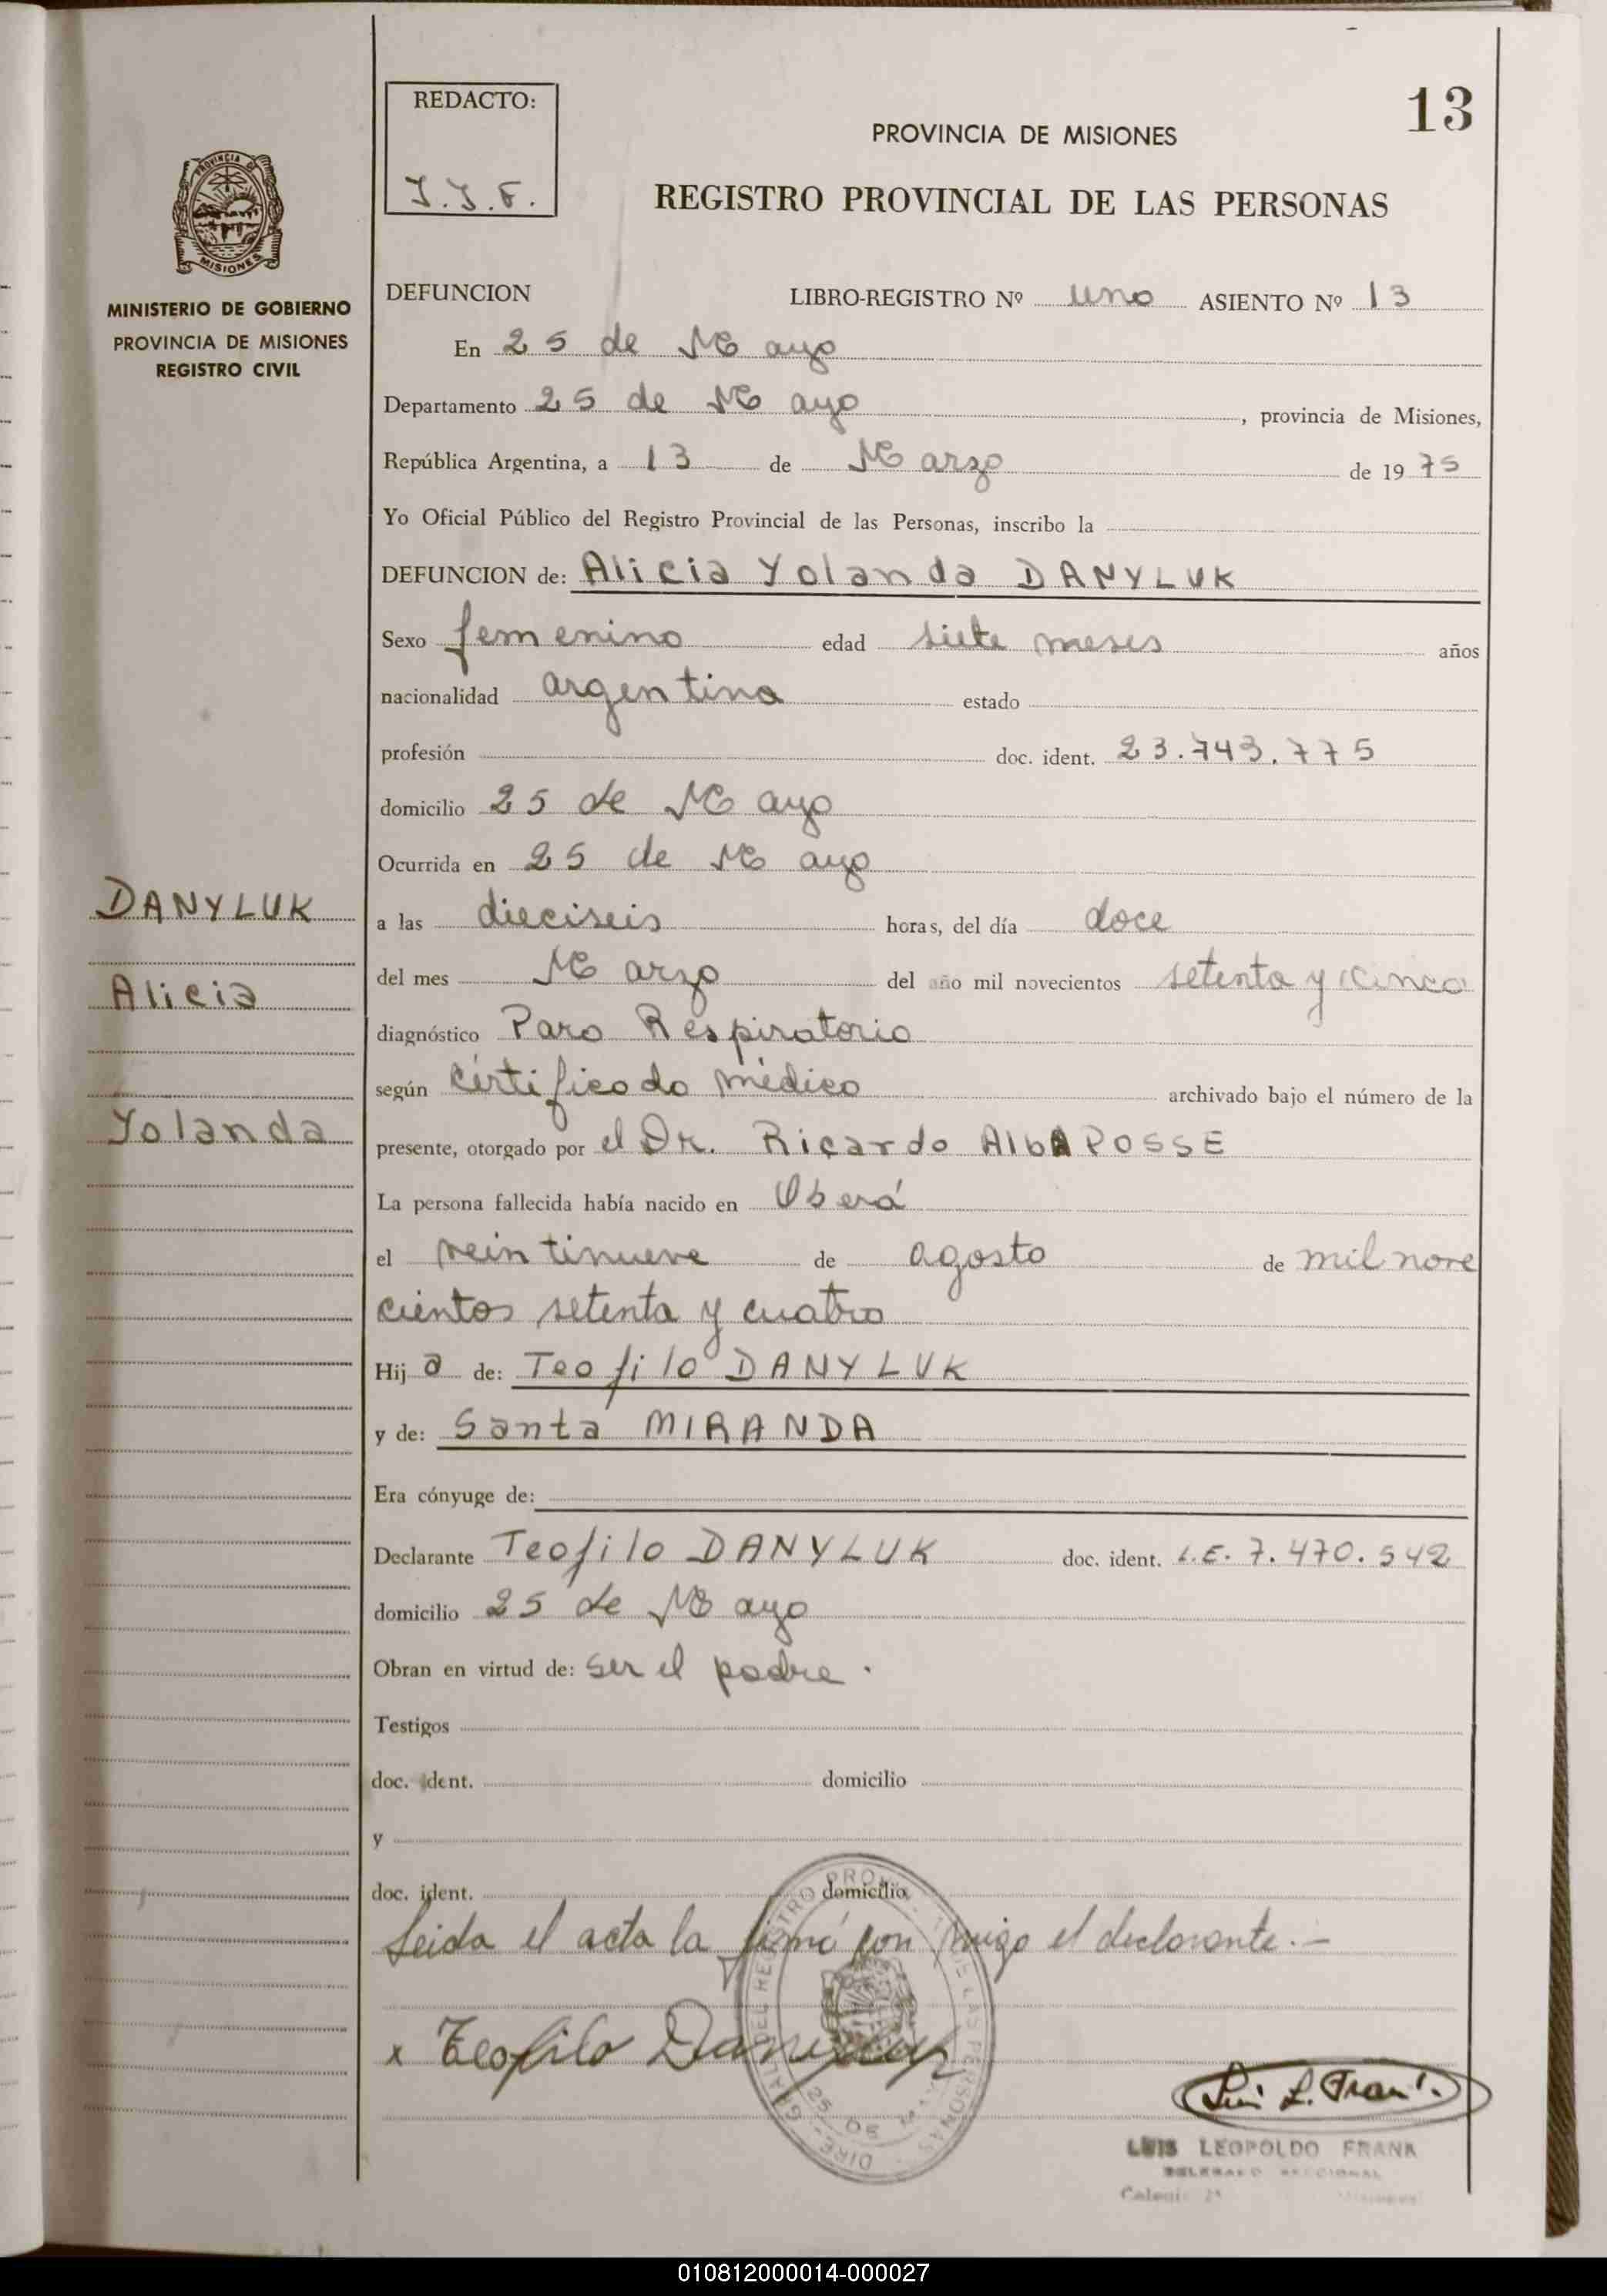 13
REDACTO:
J.J.F.
PROVINCIA DE MISIONES
REGISTRO PROVINCIAL DE LAS PERSONAS
PROVINCIA DE
MISIONES
MINISTERIO DE GOBIERNO
PROVINCIA DE MISIONES
REGISTRO CIVIL
DEFUNCION LIBRO-REGISTRO Nº uno ASIENTO Nº 13
En 25 de Mayo
Departamento 25 de Mayo, provincia de Misiones,
República Argentina, a 13 de Marzo de 1975
Yo Oficial Público del Registro Provincial de las Personas, inscribo la
DEFUNCION de: Alicia Yolanda DANYLUK
Sexo femenino edad siete meses años
nacionalidad argentina estado
profesión doc. ident. 23.743.775
domicilio 25 de Mayo
Ocurrida en 25 de Mayo
DANYLUK
Alicia
Yolanda
a las dieciseis horas, del día doce
del mes Marzo del año mil novecientos setenta y cinco
diagnóstico Paro Respiratorio
según certificado médico archivado bajo el número de la
presente, otorgado por el Dr. Ricardo AlbAPOSSE
La persona fallecida había nacido en Oberá
el veintinueve de agosto de mil nove
cientos setenta y cuatro
Hija de: Teofilo DANYLUK
y de: Santa MIRANDA
Era cónyuge de:
Declarante Teofilo DANYLUK doc. ident. L.E. 7.470.542
domicilio 25 de Mayo
Obran en virtud de: ser el padre.
Testigos
doc. ident. domicilio
y
doc. ident. domicilio
Leida el acta la firmó con migo el declarante.-
x Teofilo Daniluk
LUIS LEOPOLDO FRANK
010812000014-000027